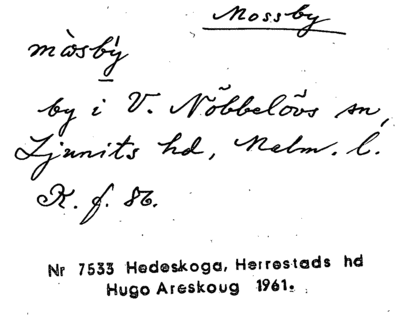 Mossby
mὰsbý
by i V. Nöbbelövs sn,
Ljunits hd, Malm. l.
K. f. 86.
Nr 7533 Hedeskoga, Herrestads hd
Hugo Areskoug 1961.